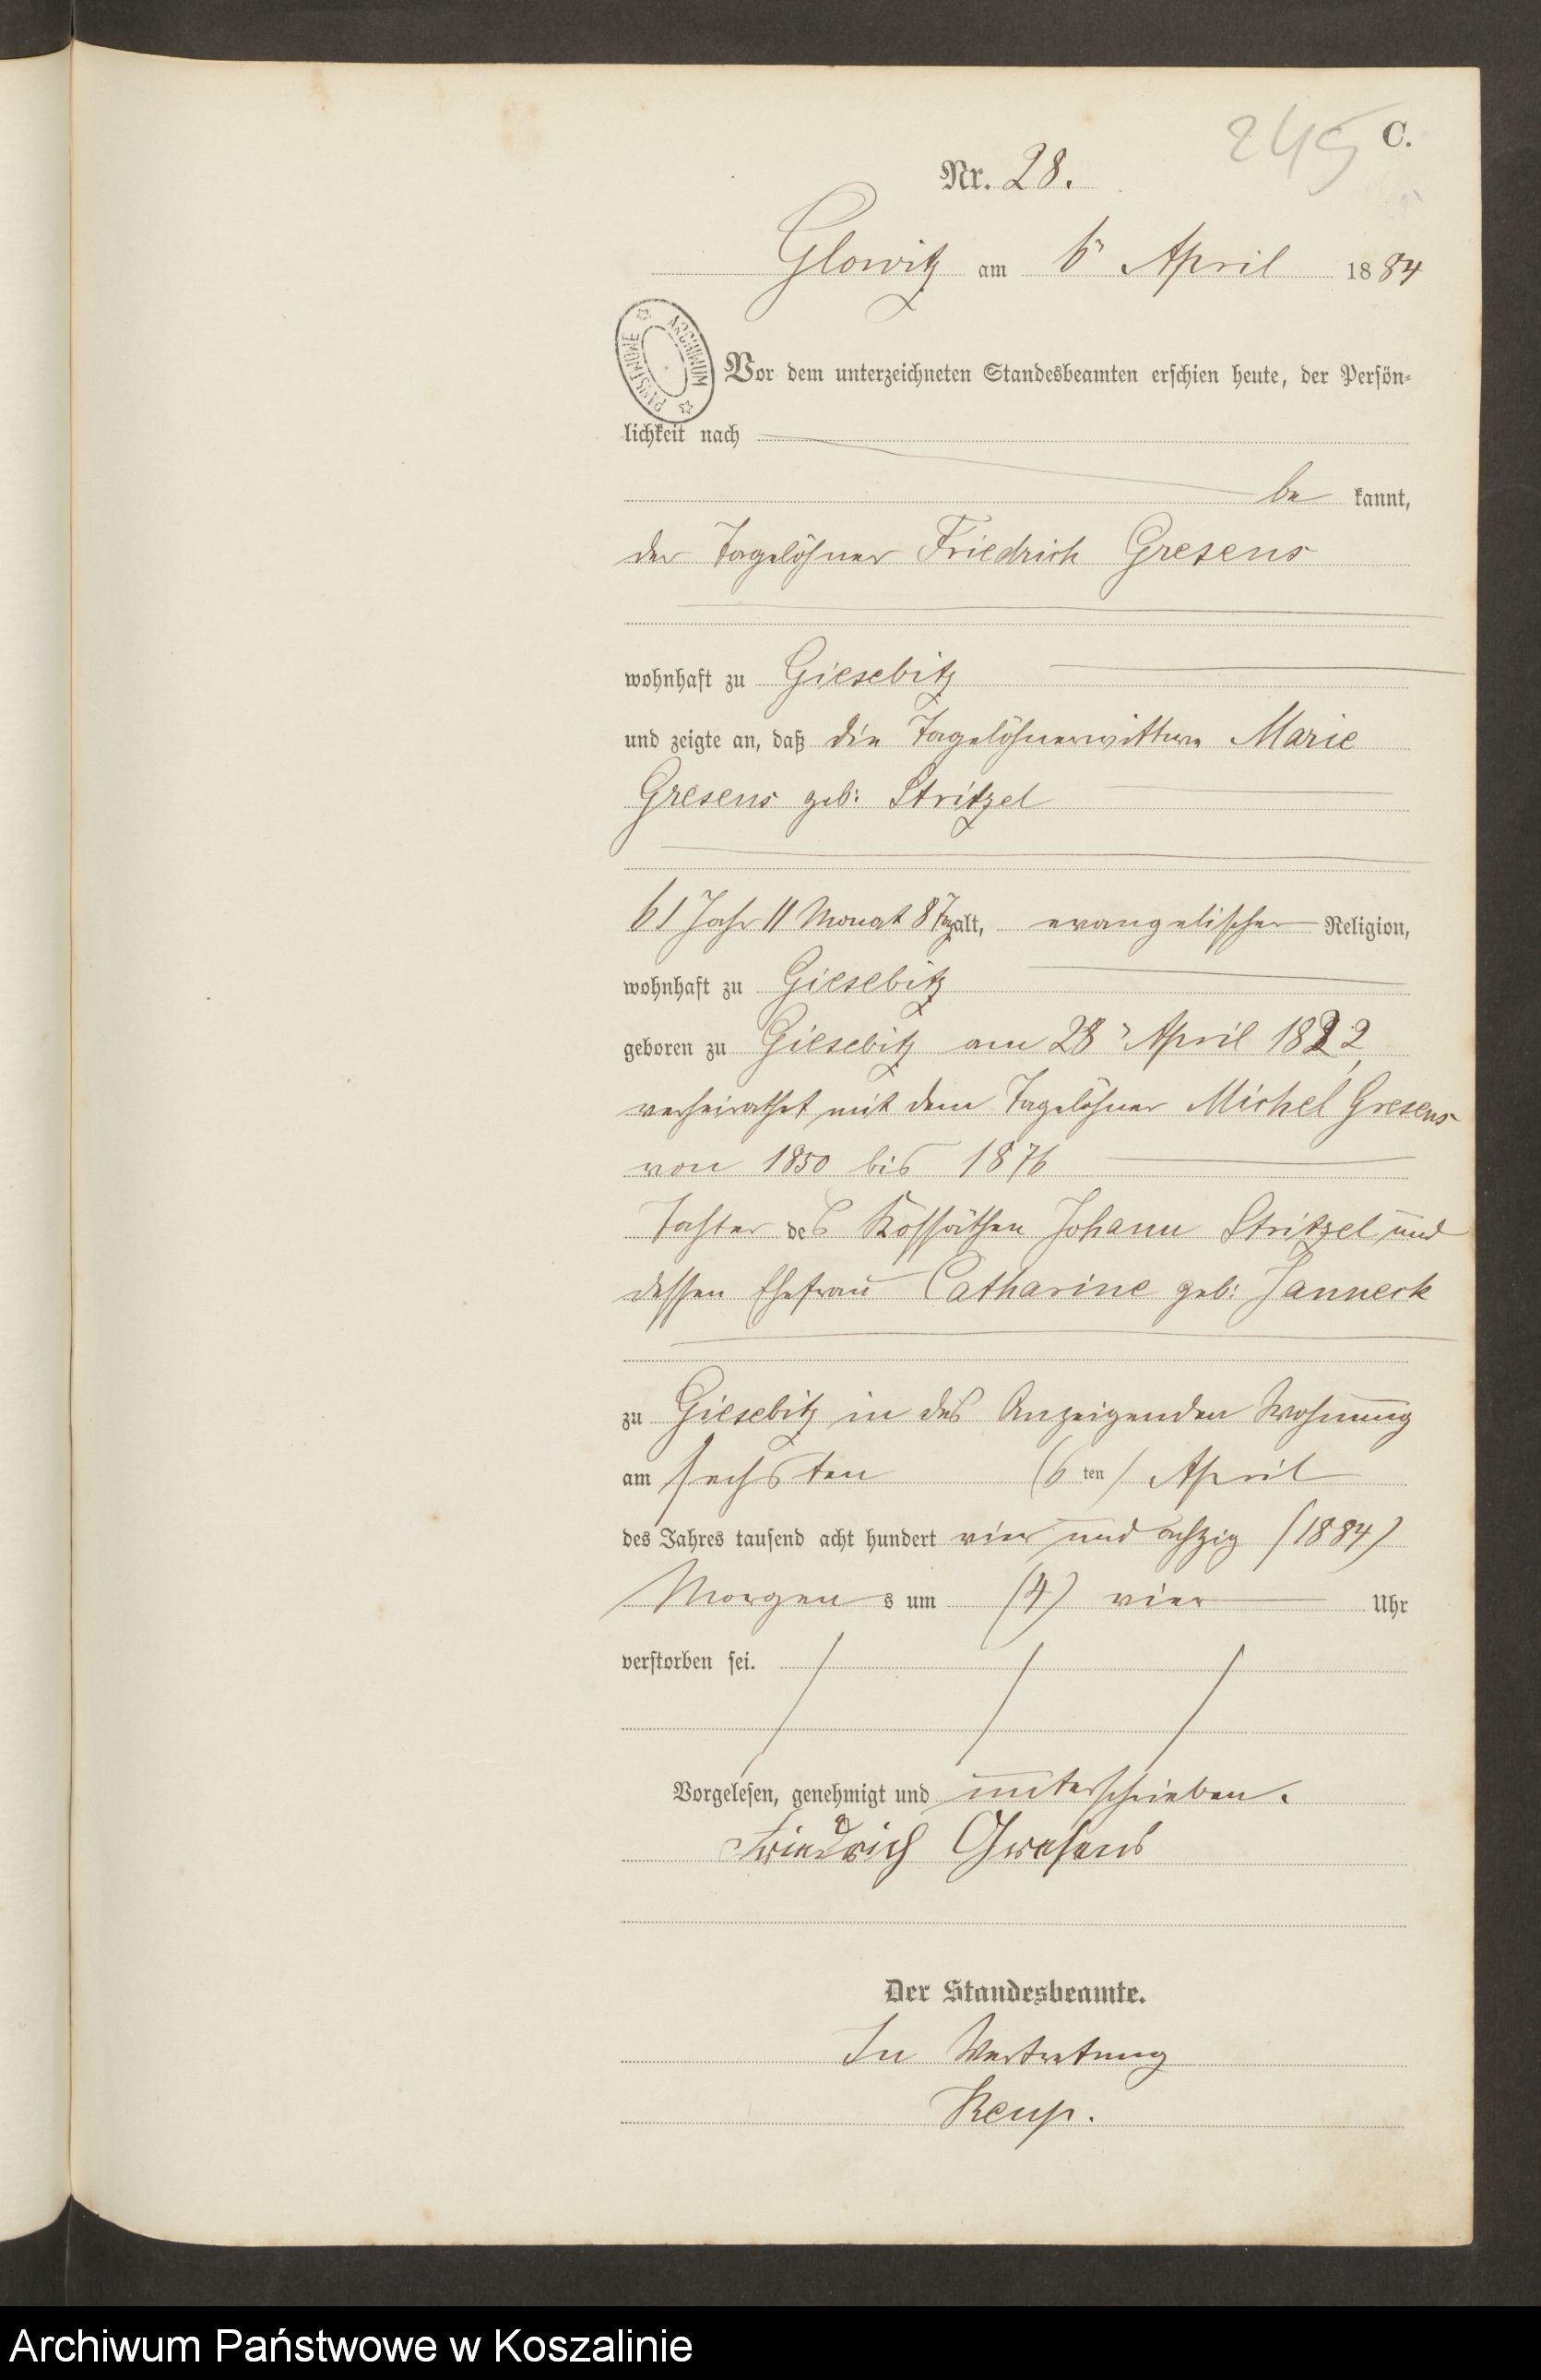 245 C.
Nr. 28.
Glowitz am 6' April 1884
ARCHIWUM PAŃSTWOWE
Vor dem unterzeichneten Standesbeamten erschien heute, der Persön-
lichkeit nach
be kannt,
der Tagelöhner Friedrich Gresens
wohnhaft zu Giesebitz
und zeigte an, daß die Tagelöhnerwittwe Marie
Gresens geb: Stritzel
61 Jahr 11 Monat 8 Tag alt, evangelischer Religion,
wohnhaft zu Giesebitz
geboren zu Giesebitz am 28' April 1822,
verheirathet mit dem Tagelöhner Michel Gresens
von 1850 bis 1876
Tochter des Kossäthen Johann Stritzel und
dessen Ehefrau Catharine geb: Janneck
zu Giesebitz in des Anzeigenden Wohnung
am sechsten (6 ten) April
des Jahres tausend acht hundert vier und achzig (1884)
Morgens um (4) vier Uhr
verstorben sei.
Vorgelesen, genehmigt und unterschrieben.
Friedrich Gresens
Der Standesbeamte.
In Vertretung
Archiwum Państwowe w Koszalinie